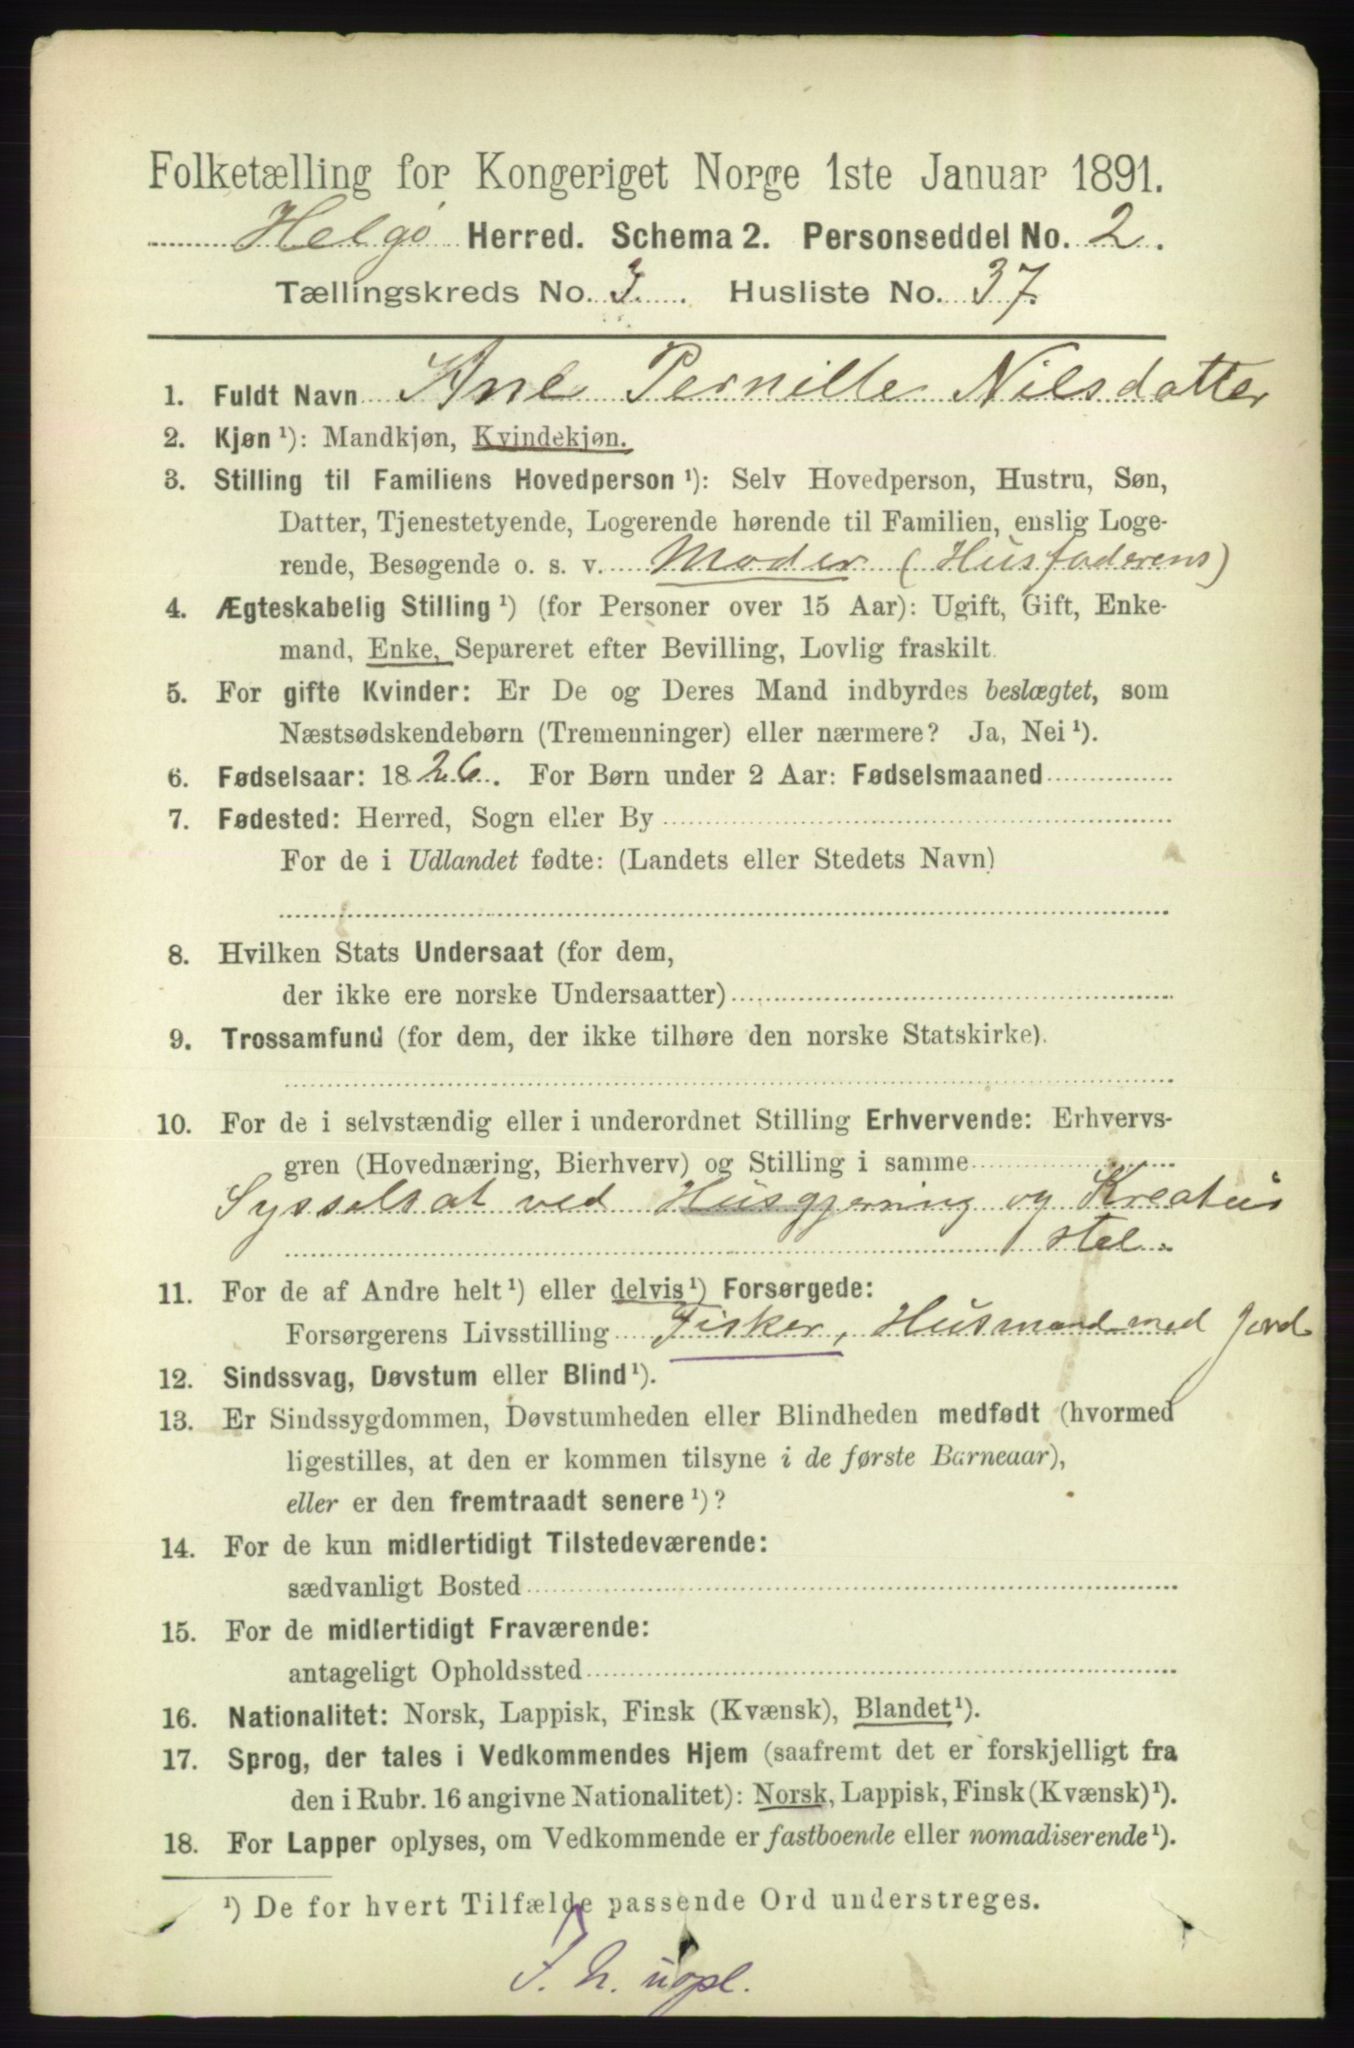 Folketælling for Kongeriget Norge 1ste Januar 1891.
Helgø Herred. Schema 2. Personseddel No. 2.
Tællingskreds No. 3. Husliste No. 37.
1. Fuldt Navn Ane Pernille Nilsdatter
2. Kjøn ¹): Mandkjøn, Kvindekjøn.
3. Stilling til Familiens Hovedperson ¹): Selv Hovedperson, Hustru, Søn,
Datter, Tjenestetyende, Logerende hørende til Familien, enslig Loge-
rende, Besøgende o. s. v. Moder (Husfaderens)
4. Ægteskabelig Stilling ¹) (for Personer over 15 Aar): Ugift, Gift, Enke-
mand, Enke, Separeret efter Bevilling, Lovlig fraskilt.
5. For gifte Kvinder: Er De og Deres Mand indbyrdes beslægtet, som
Næstsødskendebørn (Tremenninger) eller nærmere? Ja, Nei ¹).
6. Fødselsaar: 1826. For Børn under 2 Aar: Fødselsmaaned
7. Fødested: Herred, Sogn eller By
For de i Udlandet fødte: (Landets eller Stedets Navn)
8. Hvilken Stats Undersaat (for dem,
der ikke ere norske Undersaatter)
9. Trossamfund (for dem, der ikke tilhøre den norske Statskirke).
10. For de i selvstændig eller i underordnet Stilling Erhvervende: Erhvervs-
gren (Hovednæring, Bierhverv) og Stilling i samme
Sysselsat ved Husgjerning og Kreatur
stel.
11. For de af Andre helt ¹) eller delvis ¹) Forsørgede:
Forsørgerens Livsstilling Fisker, Husmand med Jord
12. Sindssvag, Døvstum eller Blind ¹).
13. Er Sindssygdommen, Døvstumheden eller Blindheden medfødt (hvormed
ligestilles, at den er kommen tilsyne i de første Barneaar),
eller er den fremtraadt senere ¹)?
14. For de kun midlertidigt Tilstedeværende:
sædvanligt Bosted
15. For de midlertidigt Fraværende:
antageligt Opholdssted
16. Nationalitet: Norsk, Lappisk, Finsk (Kvænsk), Blandet ¹).
17. Sprog, der tales i Vedkommendes Hjem (saafremt det er forskjelligt fra
den i Rubr. 16 angivne Nationalitet): Norsk, Lappisk, Finsk (Kvænsk) ¹).
18. For Lapper oplyses, om Vedkommende er fastboende eller nomadiserende ¹).
¹) De for hvert Tilfælde passende Ord understreges.
F. h. uopl.